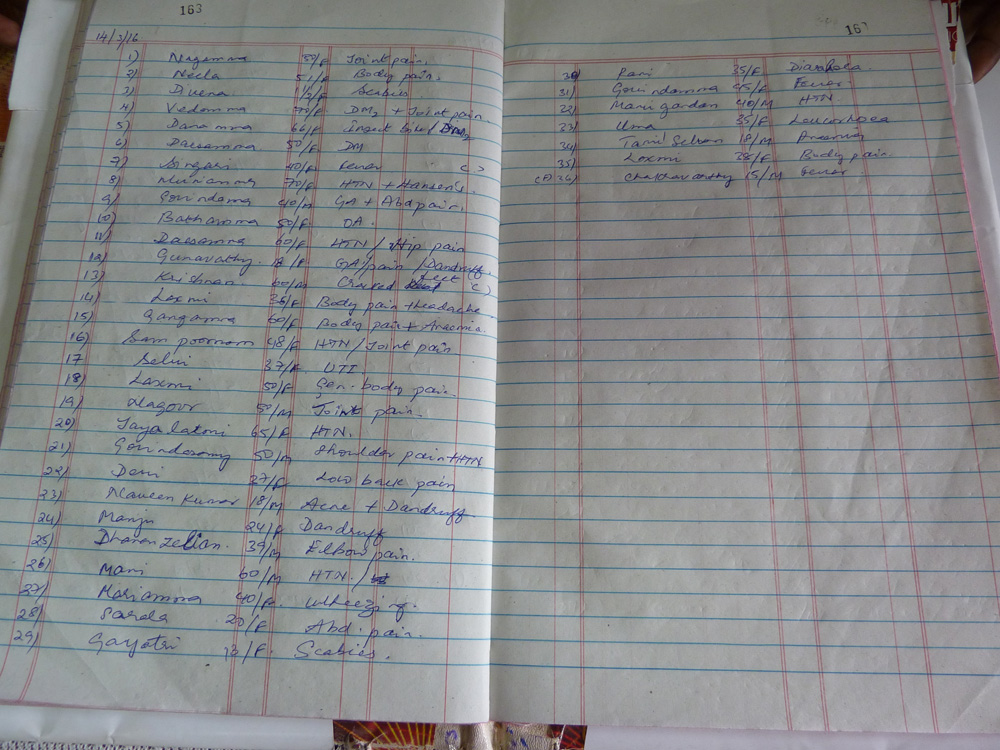 163
14/3/16
1) Nagamma 50/F Joint pain.
2) Neela 51/F Body pain.
3) 1½/F Scabies
4) Vedamma DM2 + Joint pain
5) Danamma 66/F Insect bite / DM2
6) Daesamma 50/F DM
7) Singari 40/F Fever
8) Muniamma 70/F HTN + Hansen's.
9) Govindama 40/M GA + Abd pain.
10) Bathamma 50/F OA.
11) Daesamma 60/F HTN / Hip pain
12) Gunavathy. GA/pain / Dandruff.
13) Krishnan. 60/M Cracked feet
14) Laxmi 36/F Body pain + Headache
15) Gangamma 60/F Body pain + Anaemia.
16) Sam poornam 48/F HTN / Joint pain
17 Selvi 37/F. UTI
18) Laxmi 50/F Gen. body pain.
19) Nagoor 50/M Joint pain.
20) Jayalatmi 65/F HTN.
21) Govindasamy 50/M Shoulder pain + HTN
22) Devi 37/F Low back pain
23) Naveen Kumar 18/M Acne + Dandruff.
24) Manju 24/F Dandruff
25) Dharanzelian. 39/M Elbow pain.
26) Mani 60/M HTN /
27) Mariamma 40/F. Wheezing.
28) Sarala 20/F Abd. pain.
29) Gayatri 13/F. Scabies.
167
30) Rani 35/F Diarrhoea.
31) Govindamma 45/F Fever
32) Manigandan 40/M HTN
33) Uma 35/F Leucorrhoea
34) Tamil Selvan 18/M Anaemia
35) Laxmi 38/F Body pain.
36) Chakravarthy 15/M Fever